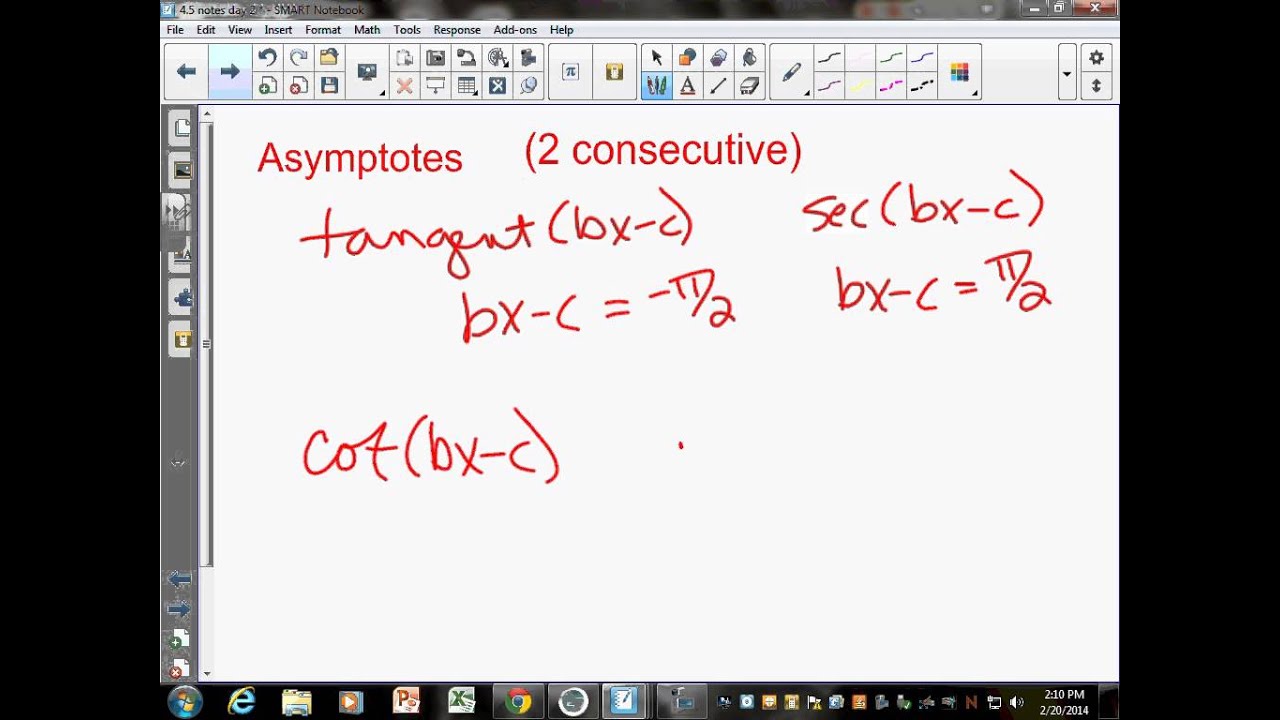 4.5 notes day 2 * - SMART Notebook
File Edit View Insert Format Math Tools Response Add-ons Help
Asymptotes (2 consecutive)
tangent(bx-c) sec(bx-c)
bx-c = -π/2 bx-c = π/2
cot(bx-c)
2:10 PM
2/20/2014